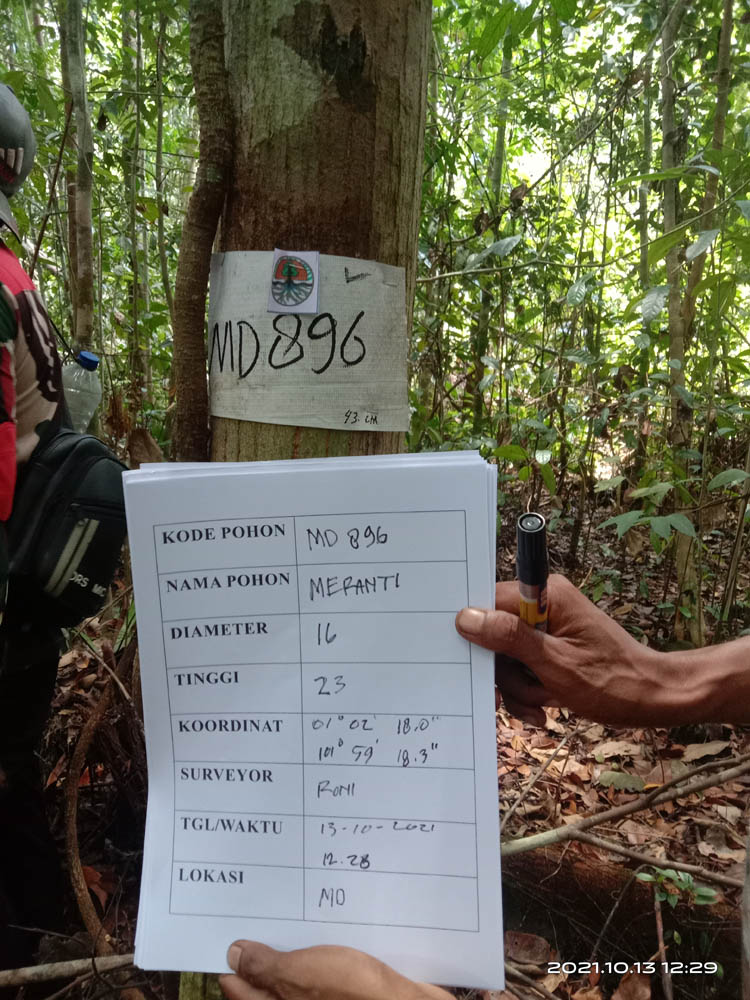 MD 896
93. CM
KODE POHON MD 896
NAMA POHON MERANTI
DIAMETER 16
TINGGI 23
KOORDINAT 01° 02' 18.0"
101° 59' 18.3"
SURVEYOR RONI
TGL/WAKTU 13-10-2021
12.28
LOKASI MD
2021.10.13 12:29